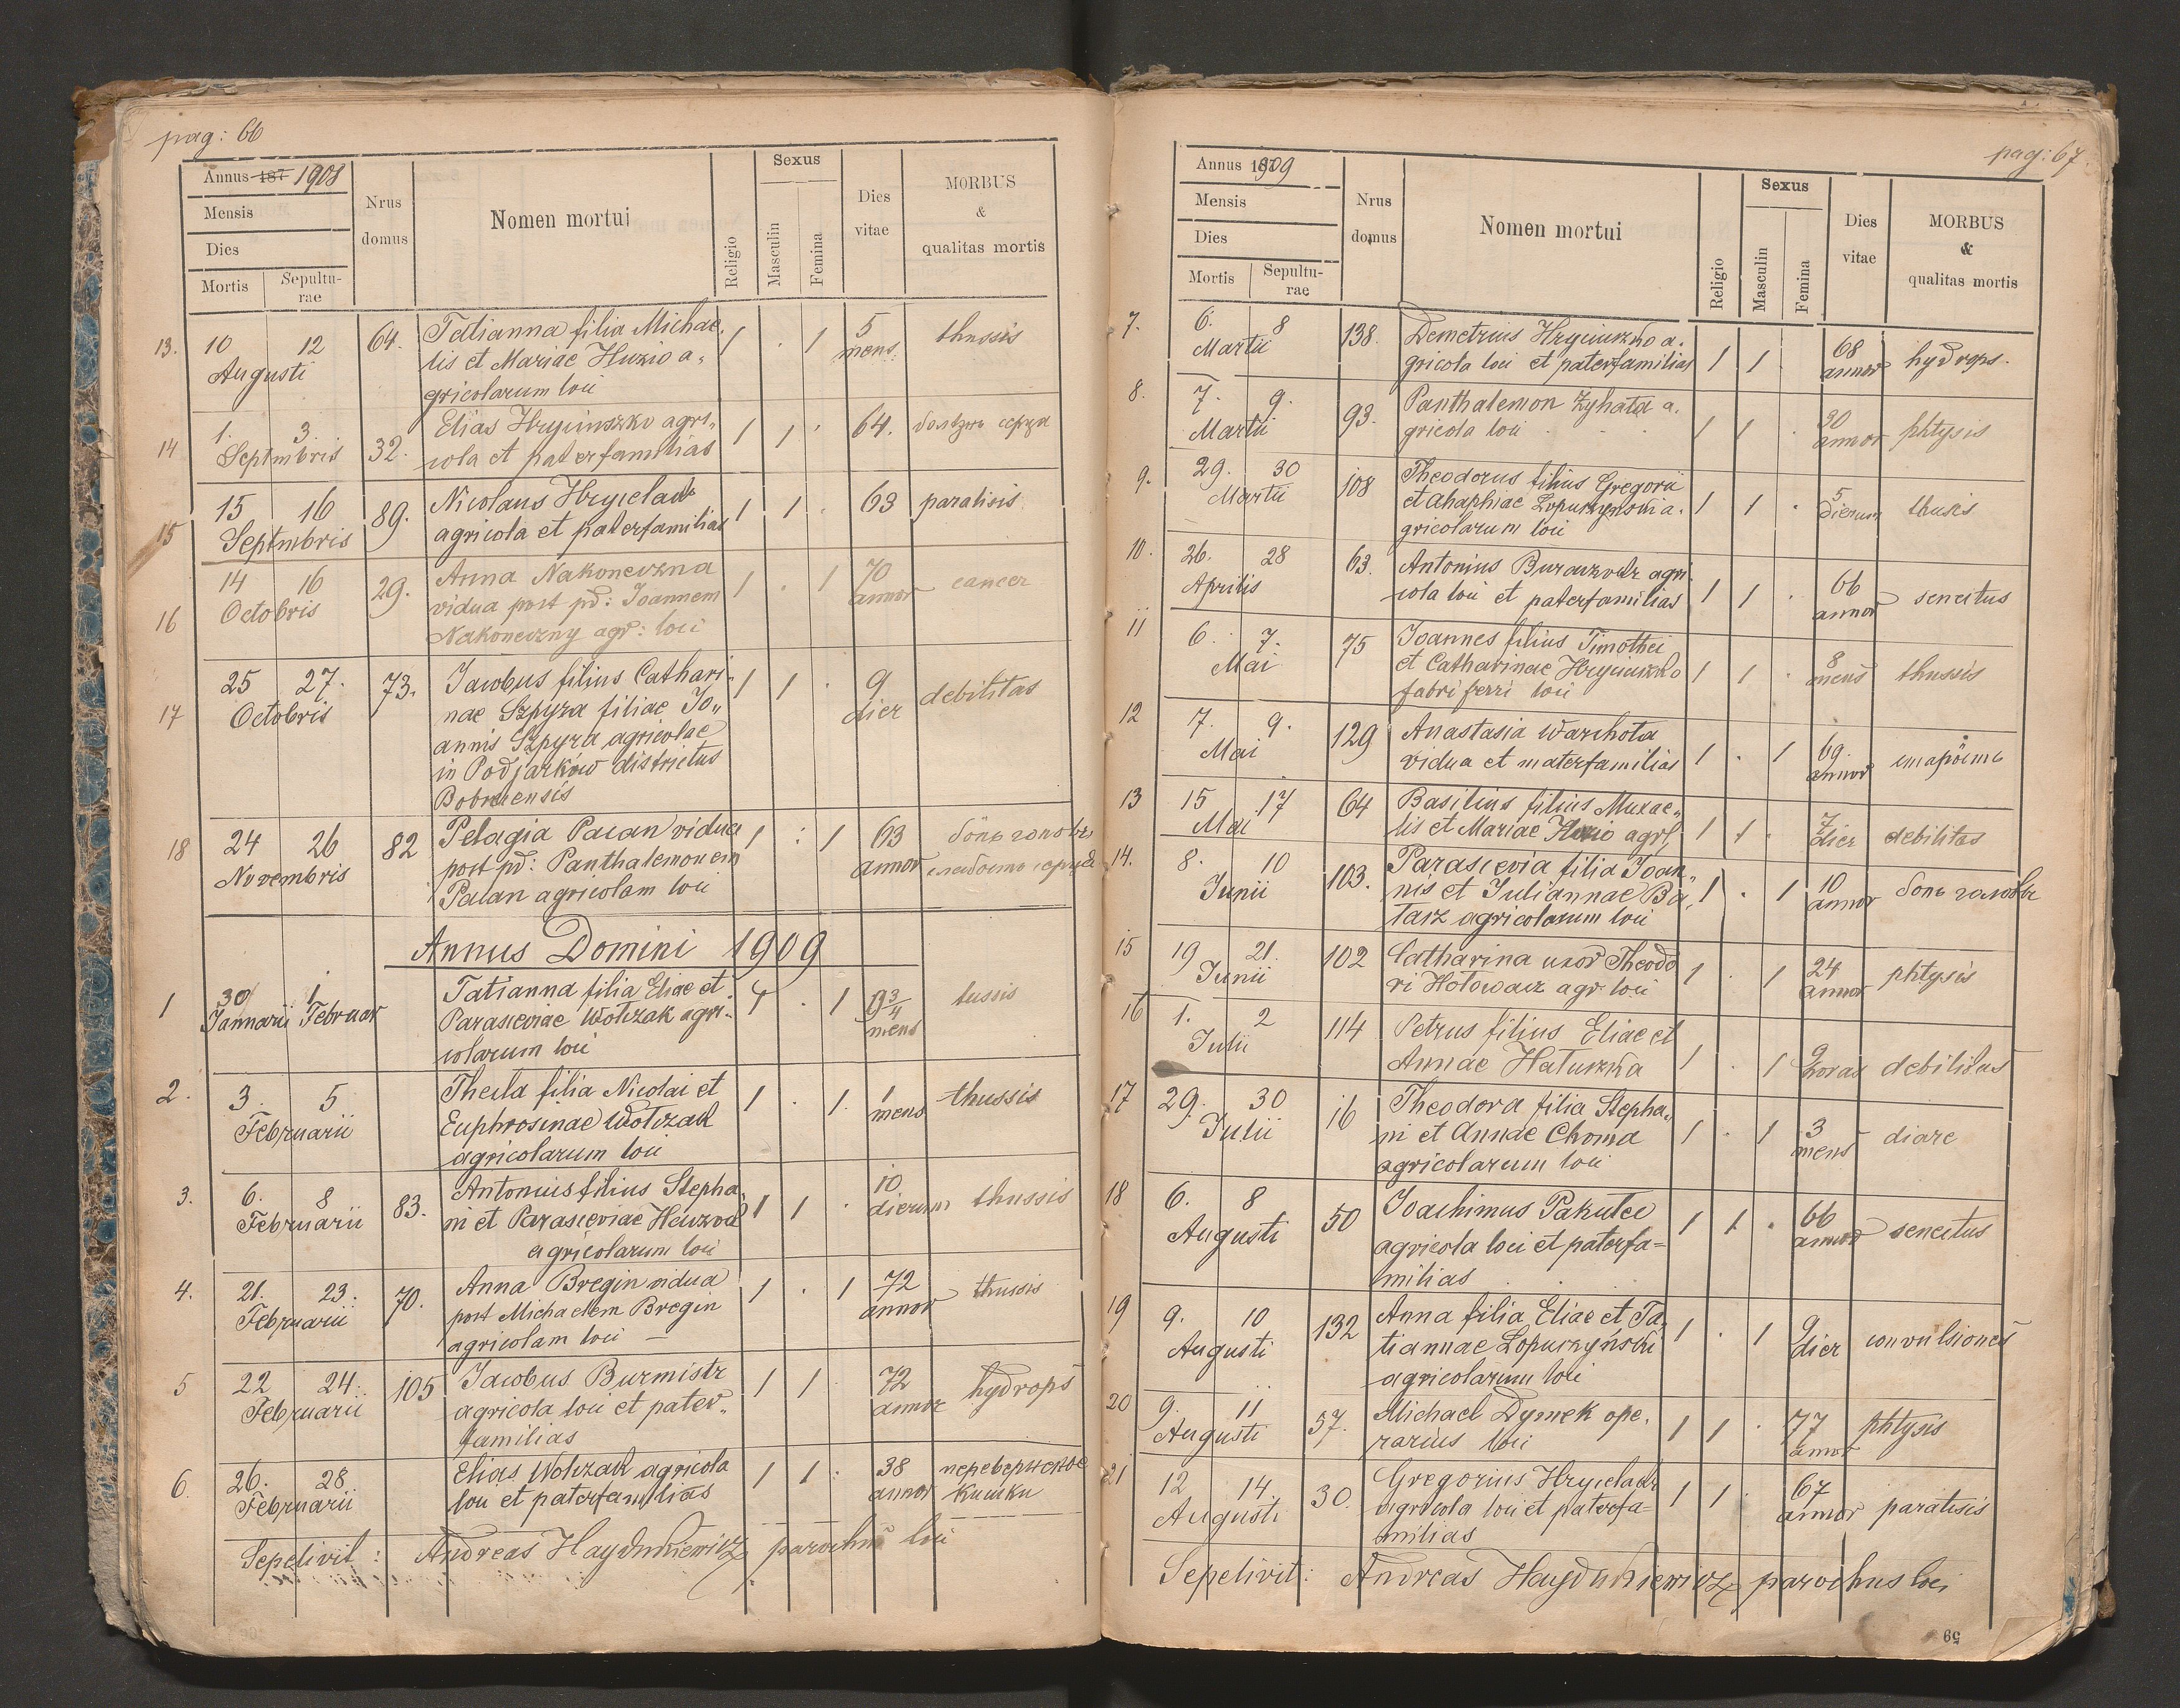 pag: 66
Annus 187 1908
Mensis
Dies
Mortis Sepultu-
rae
Nrus
domus
Nomen mortui
Religio
Sexus
Masculin
Femina
Dies
vitae
MORBUS
&
qualitas mortis
13. 10 12 64. Tatianna filia Michae- 1 . 1 5 thussis
Augusti lis et Mariae Huzio a- mens.
gricolarum loci
14 1. 3. 32. Elias Hryciuszko agri- 1 1 . 64. болѣзнь серця
Septmbris cola et paterfamilias
15 15 16 89. Nicolaus Hrycelak 1 1 . 63 paralisis
Septmbris agricola et paterfamilias
16 14 16 29. Anna Nakoneczna 1 . 1 70 cancer
Octobris vidua post pd: Joannem annor
Nakoneczny agr: loci
17 25 27. 73. Jacobus filius Cathari- 1 1 . 9 debilitas
Octobris nae Szpyra filiae Jo- dier
annis Szpyra agricolae
in Podjarków districtus
Bobrcensis
18 24 26 82 Pelagia Pacan vidua 1 : 1 63 боль головы
Novembris post pd: Panthalemonem annor слабость серця
Pacan agricolam loci
Annus Domini 1909
1 30/ 1 Tatianna filia Eliae et 1 . 1 9 3/4 tussis
Januarii Februar Parasceviae Wolczak agri- mens
colarum loci
2. 3. 5 Thecla filia Nicolai et 1 . 1. 1 thussis
Februarii Euphrosinae Wolczak mens
agricolarum loci
3. 6. 8 83. Antonius filius Stepha- 1 1 . 10 thussis
Februarii ni et Parasceviae dierum
agricolarum loci
4. 21. 23. 70. Anna Bregin vidua 1 . 1 72 thussis
Februarii post Michaelem Bregin annor
agricolam loci —
5 22 24. 105 Jacobus Burmistr 1 1 72 hydrops
Februarii agricola loci et pater- annor
familias
6. 26. 28. Elias Wolczak agricola 1 1 . 38 переверненє
Februarii loci et paterfamilias annor кишки
Sepelivit: Andreas Haydukiewicz parochus loci
pag: 67.
Annus 1909
Mensis
Dies
Mortis Sepultu-
rae
Nrus
domus
Nomen mortui
Religio
Sexus
Masculin
Femina
Dies
vitae
MORBUS
&
qualitas mortis
7. 6. 8 138. Demetrius Hryciuszko a- 1 1 68 hydrops.
Martii gricola loci et paterfamilias annor
8. 7. 9. 93. Panthalemon Zyhata a- 1 1 . 30 phtysis
Martii gricola loci annor
9. 29. 30 108 Theodorus filius Gregorii 1 1 . 5 thusis
Martii et Ahaphiae Lopuszynski a- dierum
gricolarum loci
10. 26. 28 63. Antonius agri- 1 1 . 66 senectus
Aprilis cola loci et paterfamilias annor
11 6. 7. 75 Joannes filius Timothei 1 1 . 8 thussis
Mai et Catharinae Hryciuszko mens
fabri ferri loci
12 7. 9. 129 Anastasia Warchota 1 . 1 69. старость
Mai vidua et materfamilias annor
13 15 17 64 Basilius filius Michae- 1 1 . 7 debilitas
Mai lis et Mariae Huzio agr. dier
14. 8. 10 103. Parascevia filia Joan- 1 . 1 10 боль головы
Junii nis et Juliannae Ba- annor
tarz agricolarum loci
15 19 21. 102 Catharina uxor Theodo- 1 . 1 24 phtysis
Junii ri Hotowacz agr. loci annor
16 1. 2 114 Petrus filius Eliae et 1 . 1 2 debilitas
Julii Annae Hatuszka horas
17 29. 30 16 Theodora filia Stepha- 1 . 1 3 diare
Julii ni et Annae Choma mens
agricolarum loci
18 6. 8 50 Joachimus Pakulec 1 1 . 66 senectus
Augusti agricola loci et paterfa= annor
milias
19 9. 10 132 Anna filia Eliae et Ta- 1 . 1 9 convulsiones
Augusti tiannae Lopuszyński dier
agricolarum loci
20 9. 11 57. Michael Dymek ope- 1 1 . 77 phtysis
Augusti rarius loci annor
21 12 14. 30. Gregorius Hrycelak 1 1 67 paralisis
Augusti agricola loci et paterfa= annor
milias
Sepelivit: Andreas Haydukiewicz parochus loci
59